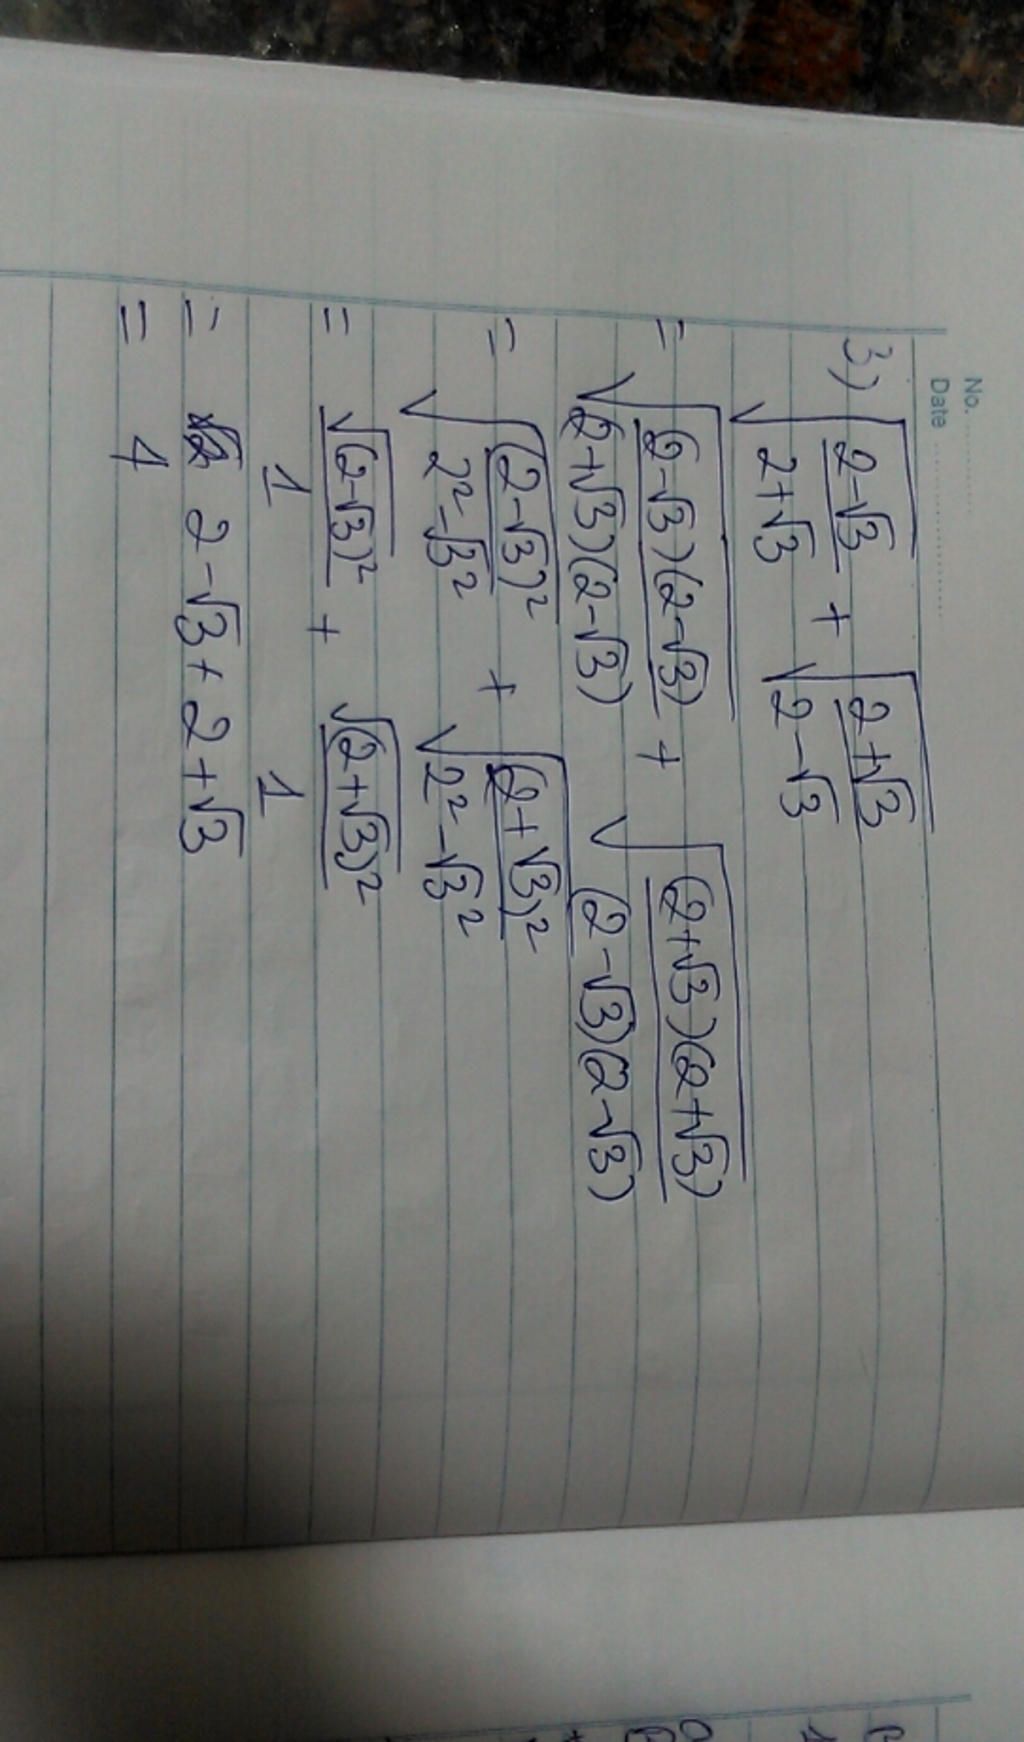 No. ............
Date ....................
3) √((2-√3)/(2+√3)) + √((2+√3)/(2-√3))
= √((2-√3)(2-√3)/((2+√3)(2-√3))) + √((2+√3)(2+√3)/((2-√3)(2-√3)))
= √((2-√3)²/(2²-√3²)) + √((2+√3)²/(2²-√3²))
= √(2-√3)²/1 + √(2+√3)²/1
= 2-√3 + 2+√3
= 4